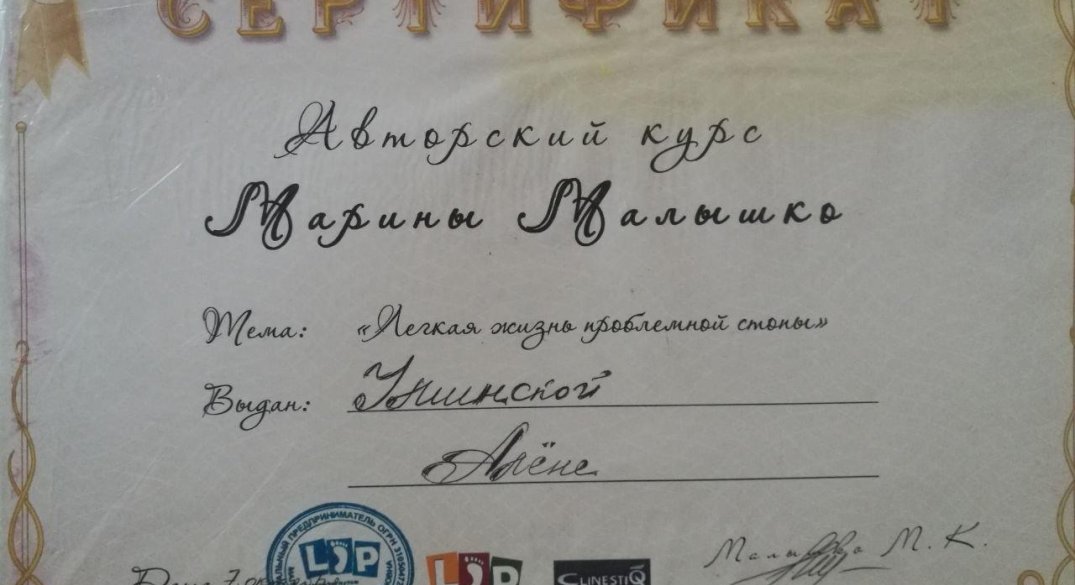 СЕРТИФИКАТ
Авторский курс
Марины Малышко
Тема: «Легкая жизнь проблемной стопы»
Выдан:
Алёне
ПРЕДПРИНИМАТЕЛЬ ОГРН
LOP
CLINESTIQ
М. К.